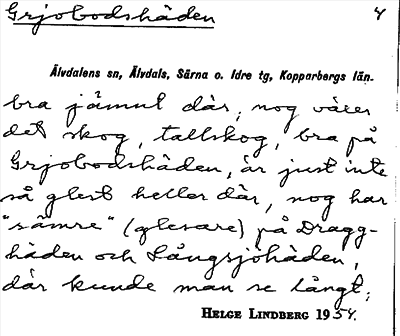 Grjobodshäden 4
Älvdalens sn, Älvdals, Särna o. Idre tg, Kopparbergs län.
bra jämnt där, nog växer
det skog, tallskog, bra på
Grjobodshäden, är just inte
så glest heller där, nog har
"sämre" (glesare) på Dragg-
häden och Långsjöhäden,
där kunde man se långt;
HELGE LINDBERG 1954.